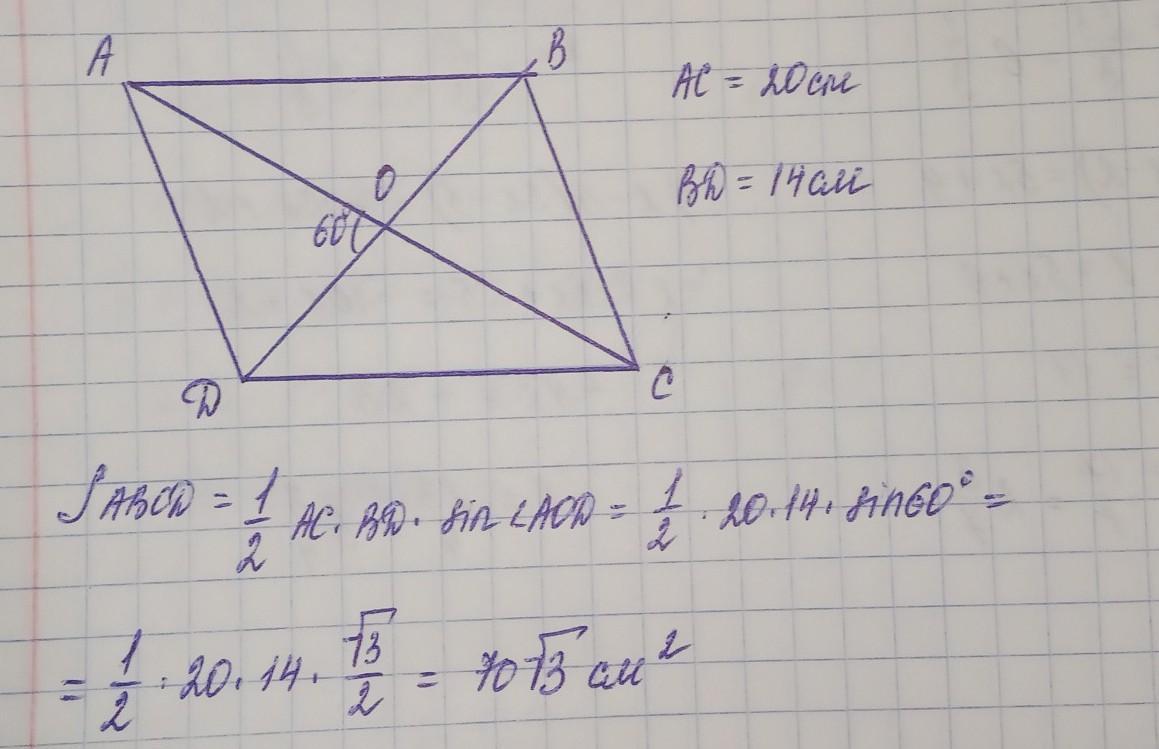 A
B
AC = 20см
O
BD = 14см
60°
D
C
SABCD = 1/2 AC · BD · sin ∠AOD = 1/2 · 20 · 14 · sin60° =
= 1/2 · 20 · 14 · √3/2 = 70√3 см²